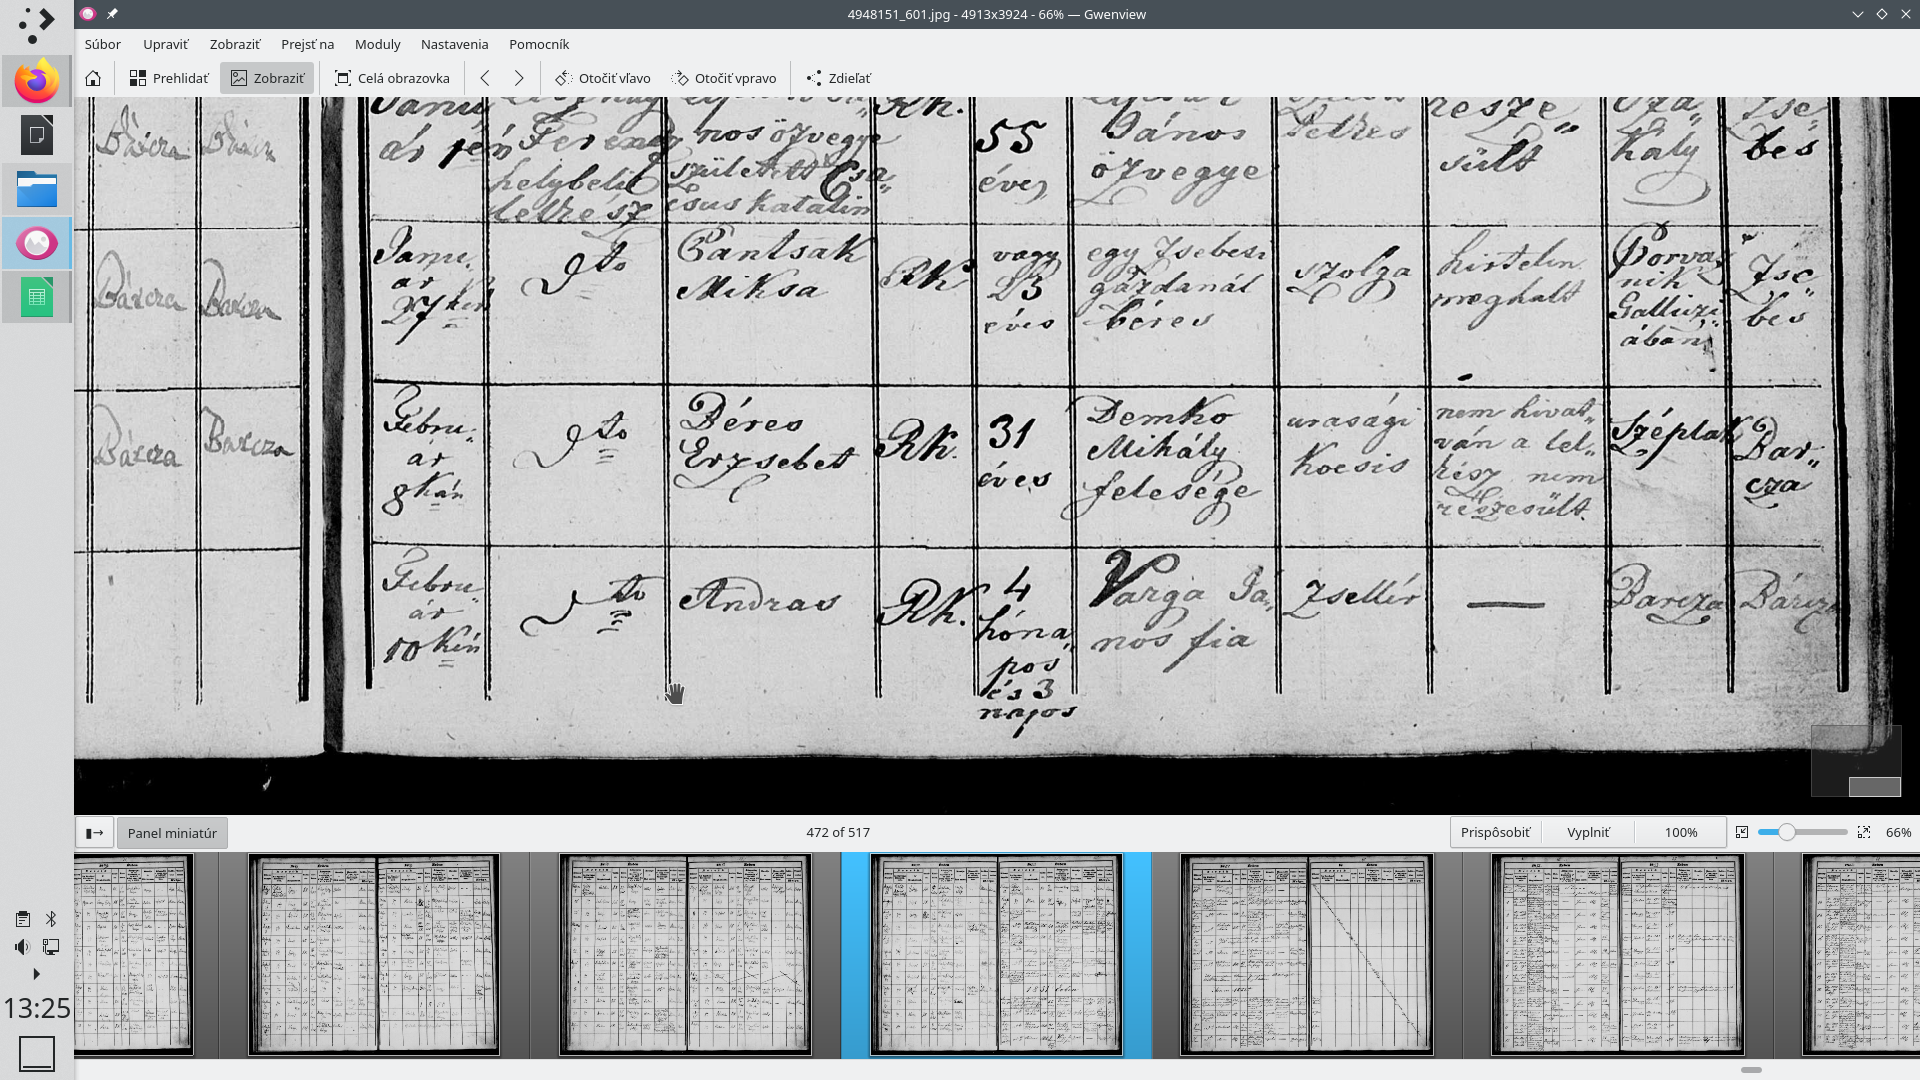 4948151_601.jpg - 4913x3924 - 66% — Gwenview
Súbor Upraviť Zobraziť Prejsť na Moduly Nastavenia Pomocník
Prehlidať Zobraziť Celá obrazovka Otočiť vľavo Otočiť vpravo Zdieľať
Rk.
55
éves
János
özvegye
sült
haly
Zse„
bes
ár
Ferencz
helybeli
lelkész
nos özvegye
született Csa„
csus Katalin
Bárcza
Barcza
Janu„
ár
27kén
dto
Miksa
Rk
vagy
23
éves
egy Zsebesi
gazdánál
béres
szolga
hirtelen
meghalt
nik
Galliczi„
ában
Zse„
bes
Bárcza
Barcza
Febru„
ár
8kán
dto
Béres
Erzsebet
Rk.
31
éves
Demko
Mihály
felesége
urasági
kocsis
nem hivat„
ván a lel„
kész nem
részesült.
Széplak
Bar„
cza
Febru„
ár
10kén
dto
Andras
Rk.
4
hóna„
pos
és 3
napos
Varga Já„
nos fia
Zsellér
—
Barcza
Bárcza
Panel miniatúr
472 of 517
Prispôsobiť Vyplniť 100% 66%
13:25